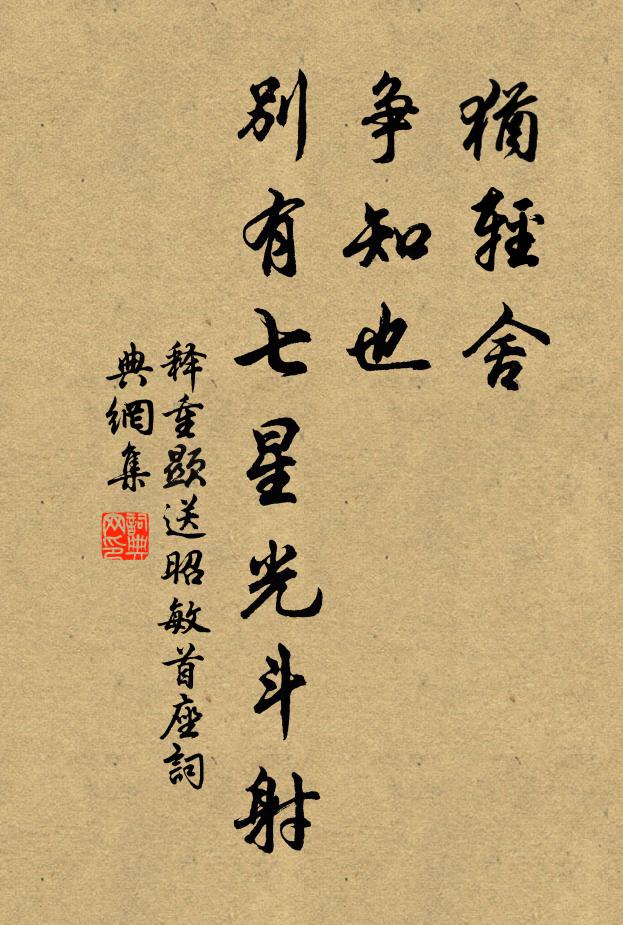 猶輕舍
争知也
别有七星光斗射
释重顯送昭敏首座詞
典網集
詞典网印